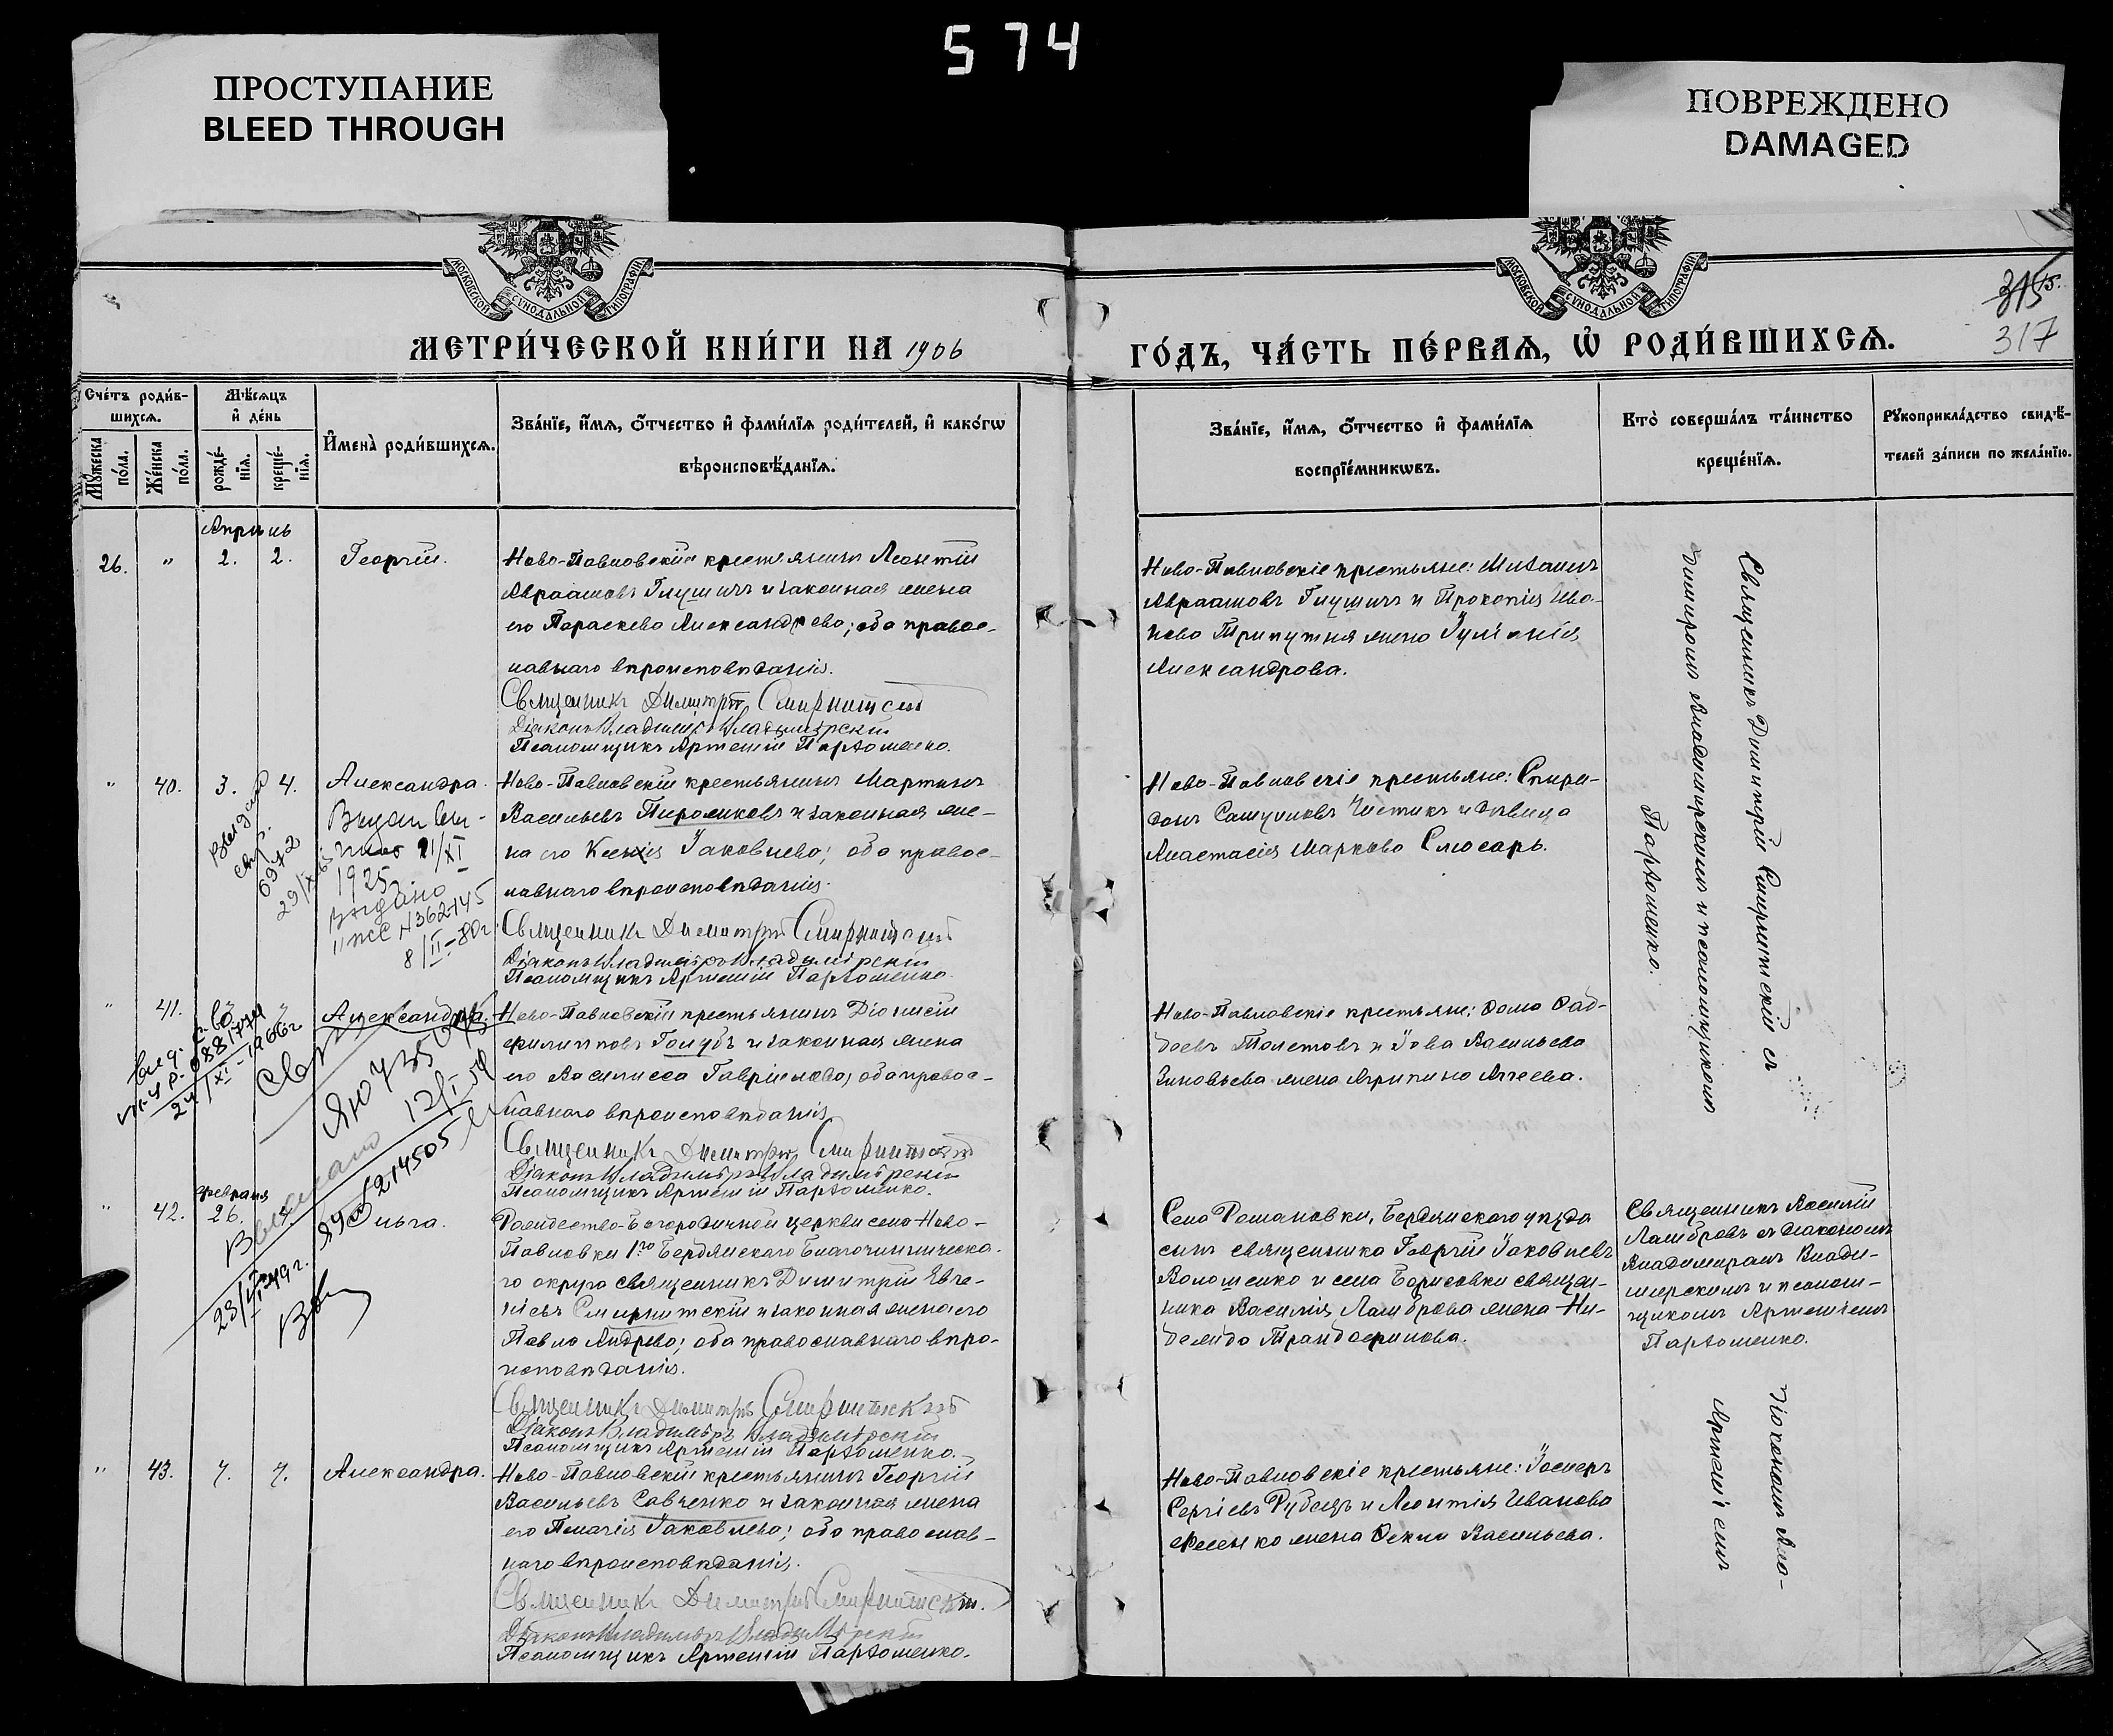 574
ПРОСТУПАНИЕ
BLEED THROUGH
ПОВРЕЖДЕНО
DAMAGED
МОСКОВСКОЙ СѴНОДАЛЬНОЙ ТИПОГРАФІИ
МОСКОВСКОЙ СѴНОДАЛЬНОЙ ТИПОГРАФІИ
315
317
МЕТРИ́ЧЕСКОЙ КНИ́ГИ НА 1906
ГО́ДЪ, ЧА́СТЬ ПЕ́РВАѦ, Ѡ҆ РОДИ́ВШИХСѦ.
Сче́тъ роди́в-
шихсѧ.
Мꙋ́жеска по́ла.
Же́нска по́ла.
Мѣ́сѧцъ
и҆ де́нь
рожде́-
нїѧ.
креще́-
нїѧ.
И҆мена̀ роди́вшихсѧ.
Зва́нїе, и҆́мѧ, ѻ҆́тчество и҆ фами́лїѧ роди́телей, и҆ како́гѡ
вѣроисповѣ́данїѧ.
Зва́нїе, и҆́мѧ, ѻ҆́тчество и҆ фами́лїѧ
воспрїе́мникѡвъ.
Кто̀ соверша́лъ та́инство
креще́нїѧ.
Рꙋкоприкла́дство свидѣ́-
телей за́писи по жела́нїю.
Апрѣль
26. " 2. 2. Георгій.
Ново-Павловскій крестьянинъ Леонтій
Авраамовъ Глушичъ и законная жена
его Параскева Александрова; оба правос-
лавнаго вѣроисповѣданія.
Священникъ Димитрій Смирнитскій
Діаконъ Владиміръ Владимірскій
Псаломщикъ Артемій Пархоменко.
Ново-Павловскіе крестьяне: Михаилъ
Авраамовъ Глушичъ и Прокопія Ива-
нова Трипутня жена Іуліанія
Александрова.
Священникъ Димитрій Смирнитскій съ
діакономъ Владимірскимъ и псаломщикомъ
Пархоменко.
" 40. 3. 4. Александра.
Выдано
свид.
6972
1925
Выдано
II ЖС № 362145
8/II-80г.
Ново-Павловскій крестьянинъ Мартинъ
Васильевъ Пироженковъ и законная же-
на его Ксенія Іаковлева; оба правос-
лавнаго вѣроисповѣданія.
Священникъ Димитрій Смирнитскій
Діаконъ Владиміръ Владимірскій
Псаломщикъ Артемій Пархоменко.
Ново-Павловскіе крестьяне: Спири-
донъ Самуиловъ Чистикъ и дѣвица
Анастасія Маркова Слюсарь.
" 41. Александра.
088177
24/XI-1966г
ЯЮ
12/I 59
Ново-Павловскій крестьянинъ Діонисій
Филипповъ Голубъ и законная жена
его Василисса Гавріилова; оба правос-
лавнаго вѣроисповѣданія.
Священникъ Димитрій Смирнитскій
Діаконъ Владиміръ Владимірскій
Псаломщикъ Артемій Пархоменко.
Ново-Павловскіе крестьяне: Ѳома Ѳад-
деевъ Толстовъ и Іова Васильева
Зиновьева жена Агрипина Аггеева.
Февраля
" 42. 26. Ольга.
214505
49г.
Рождество-Богородичной церкви села Ново-
Павловки 1го Бердянскаго Благочинническа-
го округа священникъ Димитрій Евге-
ніевъ Смирнитскій и законная жена его
Павла Андреева; оба православнаго вѣро-
исповѣданія.
Священникъ Димитрій Смирнитскій
Діаконъ Владиміръ Владимірскій
Псаломщикъ Артемій Пархоменко.
Села Романовки, Бердянскаго уѣзда
сынъ священника Георгій Іаковлевъ
Волошенко и села Борисовки священ-
ника Василія Ламброва жена Ни-
Трандафилова.
Священникъ Василій
Ламбровъ съ діакономъ
Владиміромъ Влади-
мірскимъ и псалом-
щикомъ Артеміемъ
Пархоменко.
" 43. 7. 7. Александра.
Ново-Павловскій крестьянинъ Георгій
Васильевъ Савченко и законная жена
его Пелагія Іаковлева; оба православ-
наго вѣроисповѣданія.
Священникъ Димитрій Смирнитскій.
Діаконъ Владиміръ Владимірскій
Псаломщикъ Артемій Пархоменко.
Ново-Павловскіе крестьяне: Іосифъ
Сергіевъ Рубецъ и Леонтія Иванова
Фесенко жена Ѳекла Васильева.
Артеміемъ